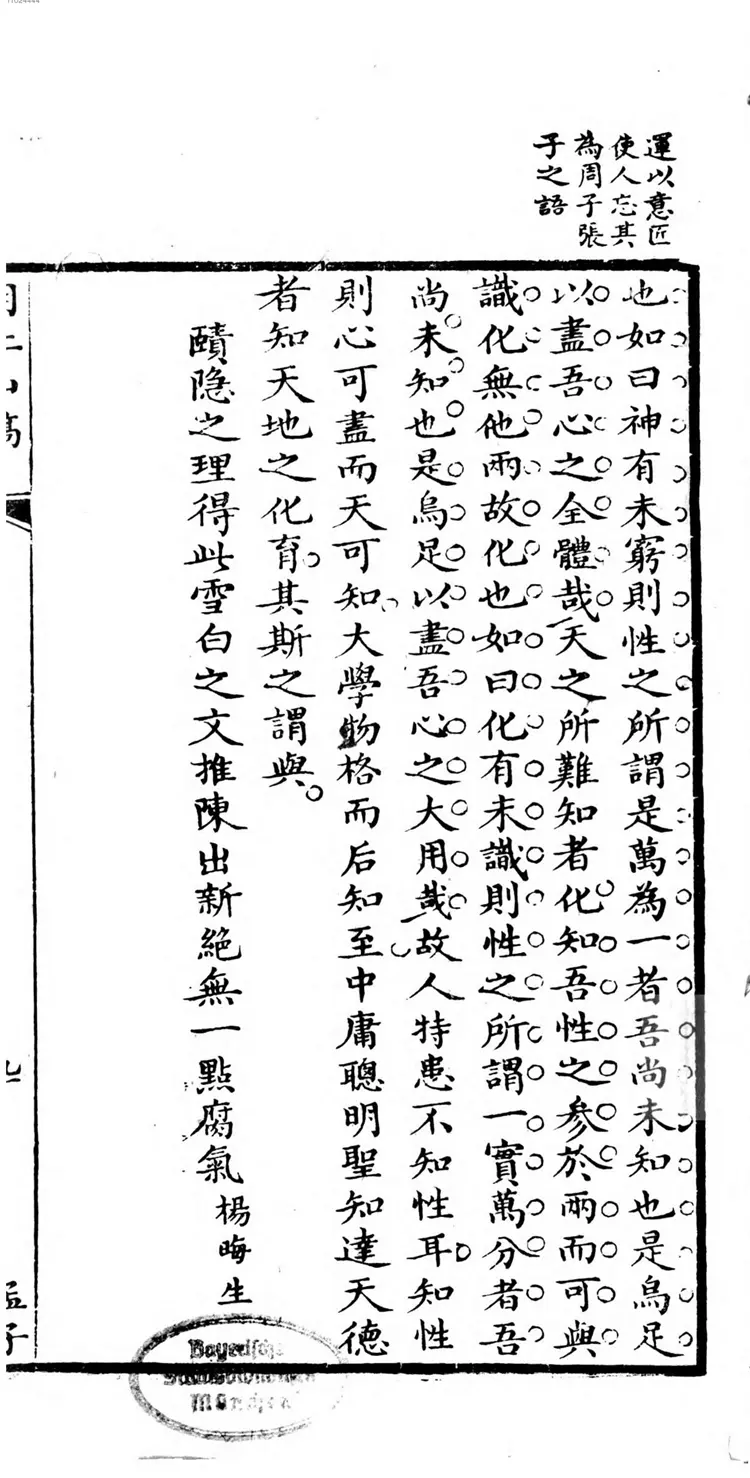 11024444
運以意匠
使人忘其
為周子張
子之語
也如曰神有未窮則性之所謂是萬為一者吾尚未知也是烏足
以盡吾心之全體哉天之所難知者化知吾性之參於兩而可與
識化無他兩故化也如曰化有未識則性之所謂一實萬分者吾
尚未知也是烏足以盡吾心之大用哉故人特患不知性耳知性
則心可盡而天可知大學物格而后知至中庸聰明聖知達天德
者知天地之化育其斯之謂與
賾隐之理得此雪白之文推陳出新絶無一點腐氣 楊晦生
孟子
Bayerische
Staatsbibliothek
München